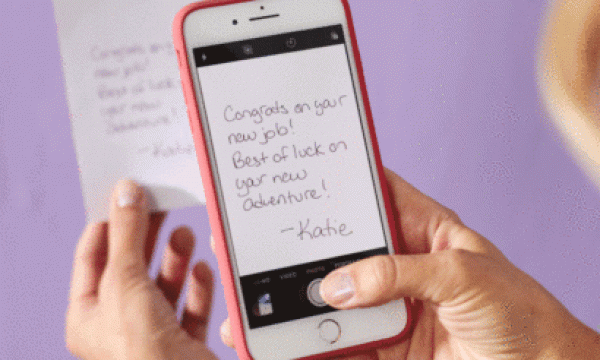 Congrats on your
new job!
Best of luck on
your new
adventure!
—Katie
Congrats on
new job!
Best of luck
your new
adventure!
—Katie
VIDEO
PHOTO